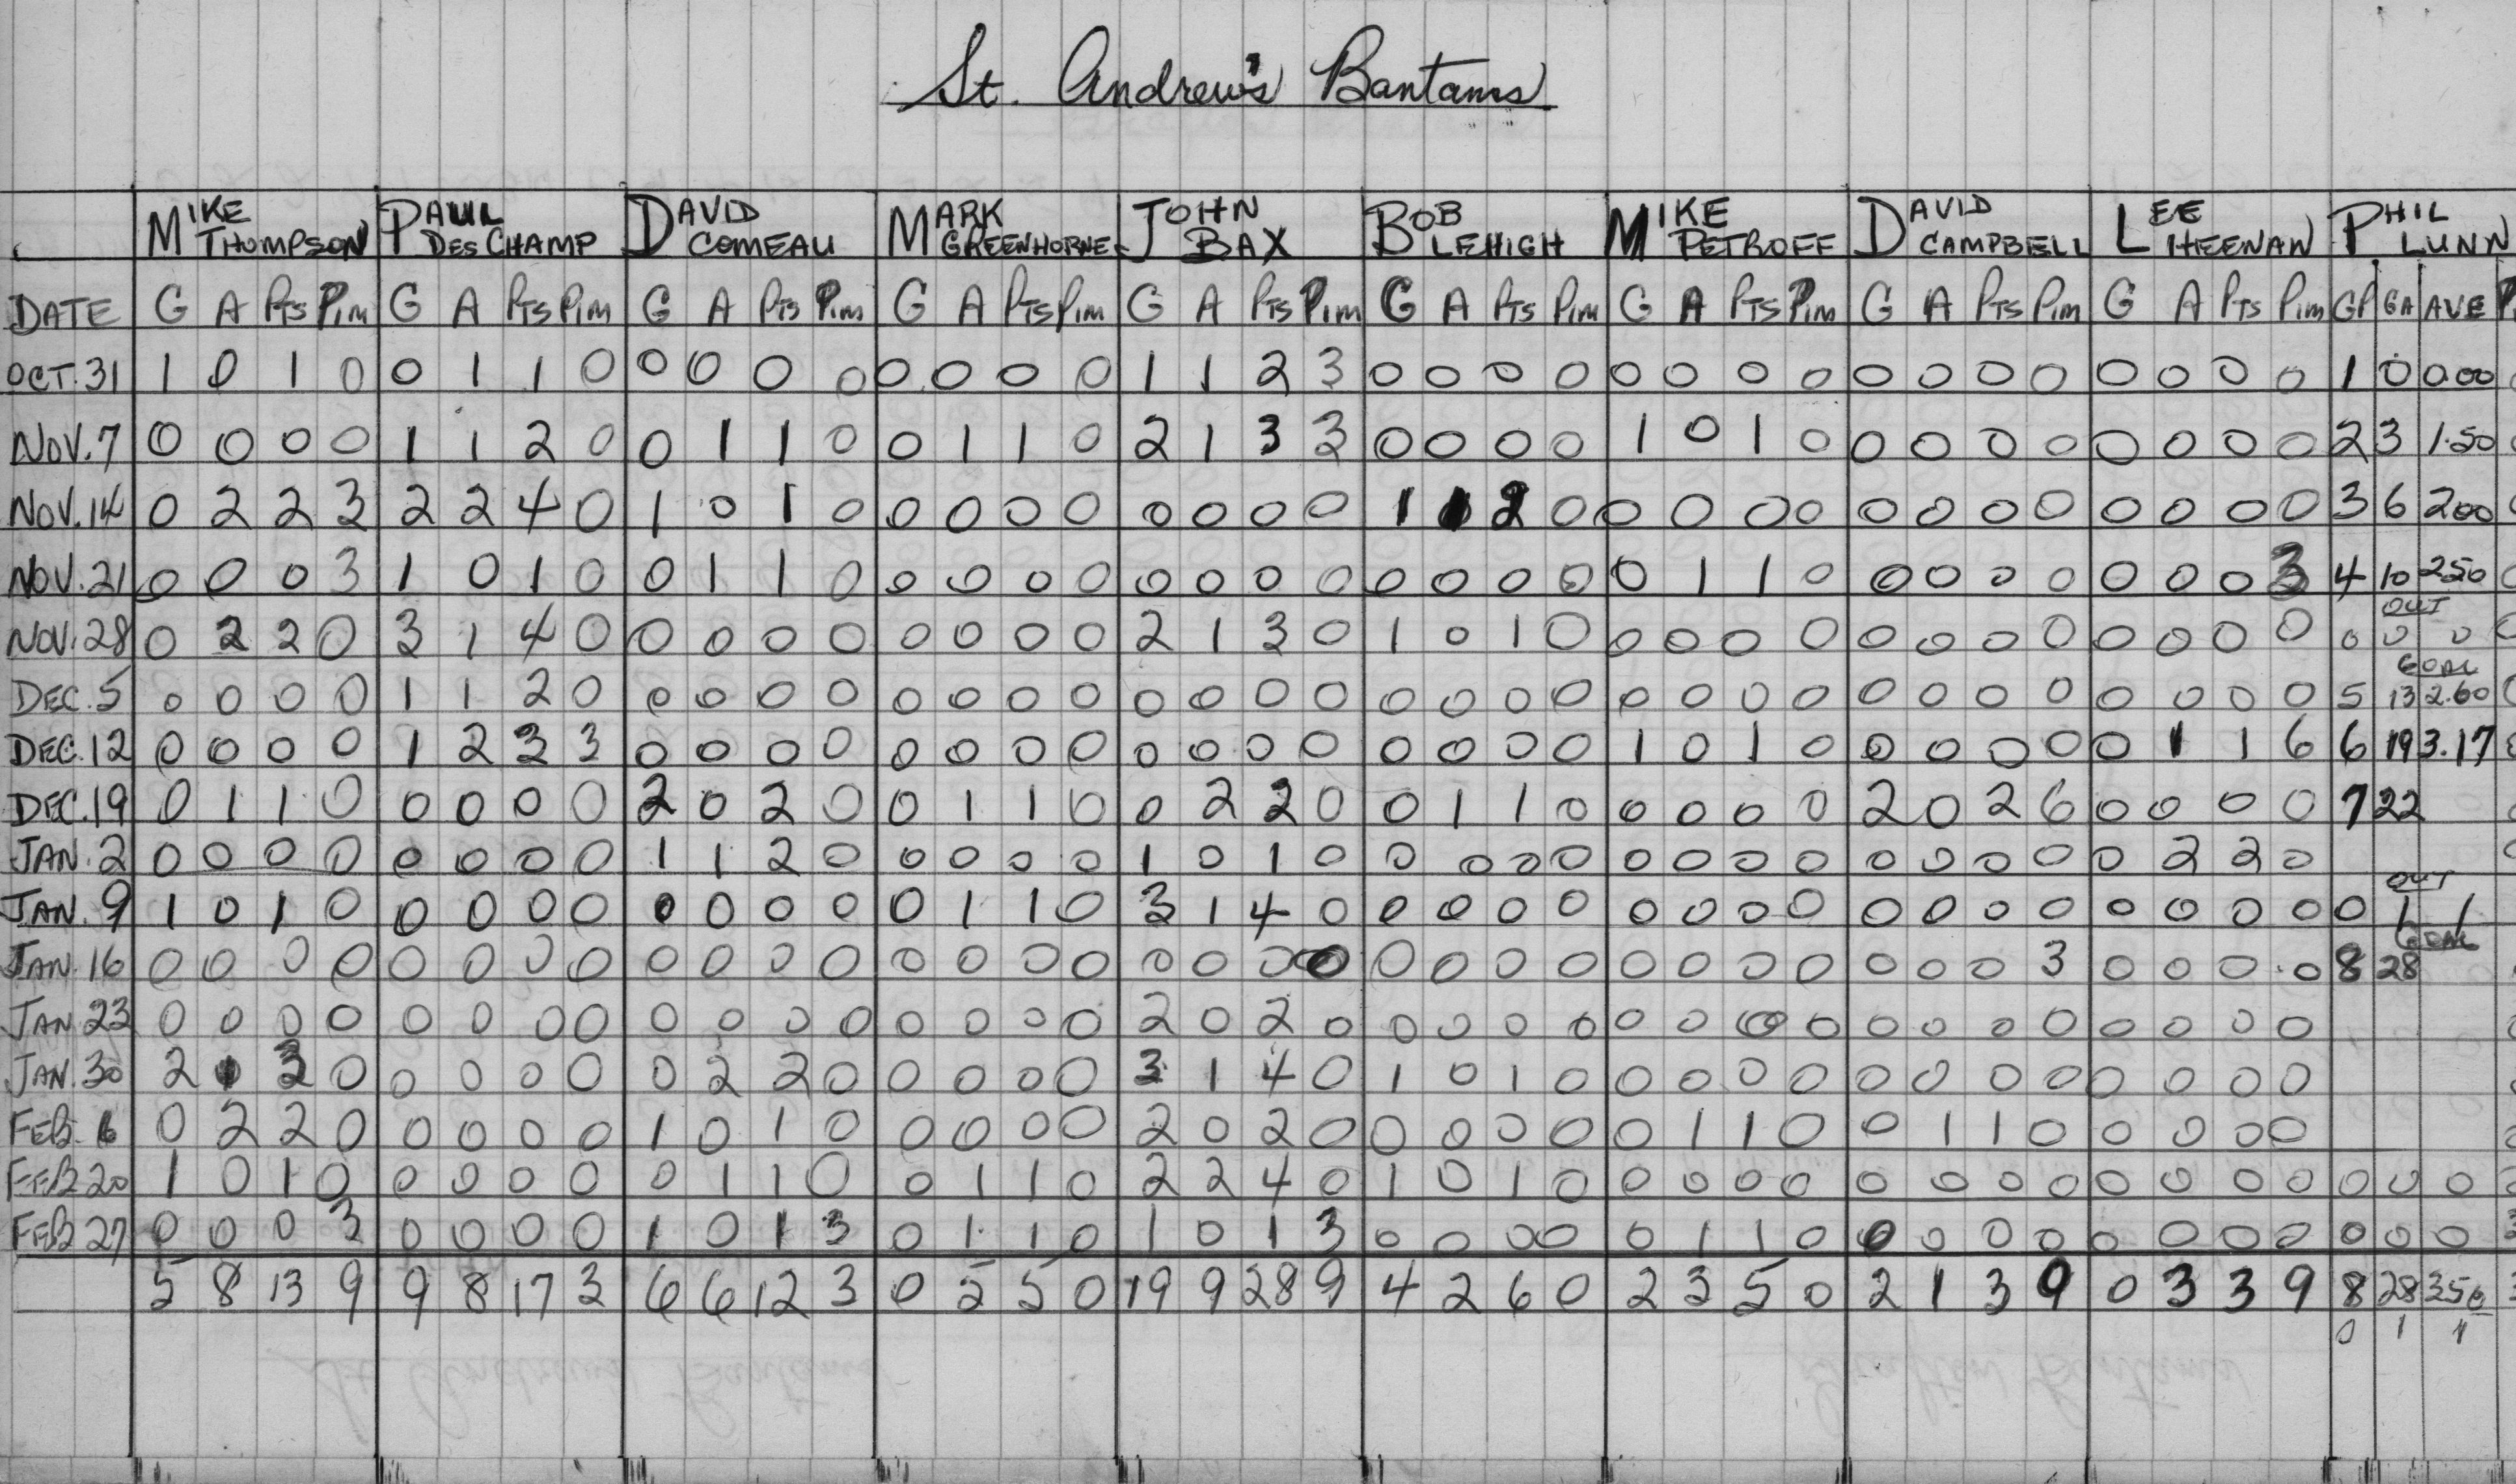 St. Andrew's Bantams
MIKE THOMPSON PAUL DESCHAMP DAVID COMEAU MARK GREENHORNE JOHN BAX BOB LEHIGH MIKE PETROFF DAVID CAMPBELL LEE HEENAN PHIL LUNN
DATE G A PTS PIM G A PTS PIM G A PTS PIM G A PTS PIM G A PTS PIM G A PTS PIM G A PTS PIM G A PTS PIM G A PTS PIM GP GA AVE
OCT. 31 1 0 1 0 0 1 1 0 0 0 0 0 0 0 0 0 1 1 2 3 0 0 0 0 0 0 0 0 0 0 0 0 0 0 0 0 1 0 0.00
NOV. 7 0 0 0 0 1 1 2 0 0 1 1 0 0 1 1 0 2 1 3 3 0 0 0 0 1 0 1 0 0 0 0 0 0 0 0 0 2 3 1.50
NOV. 14 0 2 2 3 2 2 4 0 1 0 1 0 0 0 0 0 0 0 0 0 1 1 2 0 0 0 0 0 0 0 0 0 0 0 0 0 3 6 200
NOV. 21 0 0 0 3 1 0 1 0 0 1 1 0 0 0 0 0 0 0 0 0 0 0 0 0 0 1 1 0 0 0 0 0 0 0 0 3 4 10 250
OUT
NOV. 28 0 2 2 0 3 1 4 0 0 0 0 0 0 0 0 0 2 1 3 0 1 0 1 0 0 0 0 0 0 0 0 0 0 0 0 0 0 0 0
GOAL
DEC. 5 0 0 0 0 1 1 2 0 0 0 0 0 0 0 0 0 0 0 0 0 0 0 0 0 0 0 0 0 0 0 0 0 0 0 0 0 5 13 2.60
DEC. 12 0 0 0 0 1 2 3 3 0 0 0 0 0 0 0 0 0 0 0 0 0 0 0 0 1 0 1 0 0 0 0 0 0 1 1 6 6 19 3.17
DEC. 19 0 1 1 0 0 0 0 0 2 0 2 0 0 1 1 0 0 2 2 0 0 1 1 0 0 0 0 0 2 0 2 6 0 0 0 0 7 22
JAN. 2 0 0 0 0 0 0 0 0 1 1 2 0 0 0 0 0 1 0 1 0 0 0 0 0 0 0 0 0 0 0 0 0 0 2 2 0
OUT
JAN. 9 1 0 1 0 0 0 0 0 0 0 0 0 0 1 1 0 3 1 4 0 0 0 0 0 0 0 0 0 0 0 0 0 0 0 0 0 0 1 1
GOAL
JAN. 16 0 0 0 0 0 0 0 0 0 0 0 0 0 0 0 0 0 0 0 0 0 0 0 0 0 0 0 0 0 0 0 3 0 0 0 0 8 28
JAN. 23 0 0 0 0 0 0 0 0 0 0 0 0 0 0 0 0 2 0 2 0 0 0 0 0 0 0 0 0 0 0 0 0 0 0 0 0
JAN. 30 2 1 3 0 0 0 0 0 0 2 2 0 0 0 0 0 3 1 4 0 1 0 1 0 0 0 0 0 0 0 0 0 0 0 0 0
FEB. 6 0 2 2 0 0 0 0 0 1 0 1 0 0 0 0 0 2 0 2 0 0 0 0 0 0 1 1 0 0 1 1 0 0 0 0 0
FEB 20 1 0 1 0 0 0 0 0 0 1 1 0 0 1 1 0 2 2 4 0 1 0 1 0 0 0 0 0 0 0 0 0 0 0 0 0 0 0 0
FEB 27 0 0 0 3 0 0 0 0 1 0 1 3 0 1 1 0 1 0 1 3 0 0 0 0 0 1 1 0 0 0 0 0 0 0 0 0 0 0 0
5 8 13 9 9 8 17 3 6 6 12 3 0 5 5 0 19 9 28 9 4 2 6 0 2 3 5 0 2 1 3 9 0 3 3 9 8 28 350
0 1 1